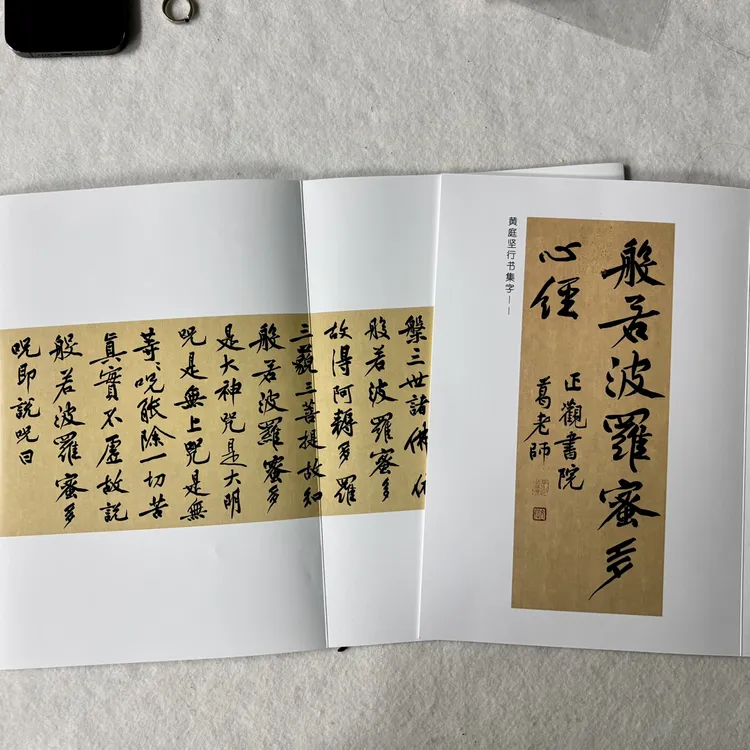 黄庭坚行书集字——
般若波羅蜜多
心經
正觀書院
葛老師
槃三世諸佛
般若波羅蜜多
故得阿耨多羅
三藐三菩提故知
般若波羅蜜多
是大神咒是大明
呪是無上咒是無
等〻呪能除一切苦
真實不虛故說
般若波羅蜜多
呪即說呪曰